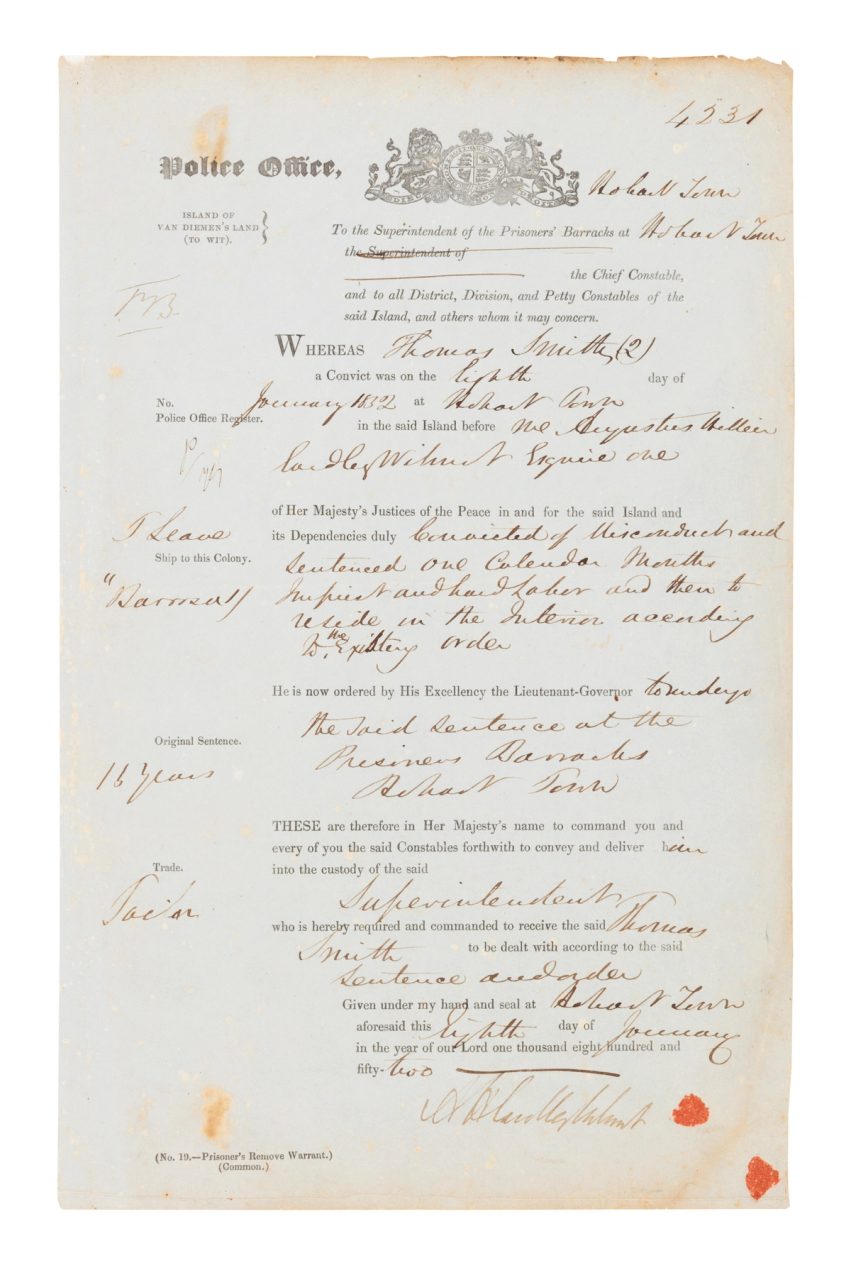 4231
Police Office,
Hobart Town
ISLAND OF
VAN DIEMEN'S LAND
(TO WIT).
To the Superintendent of the Prisoners' Barracks at Hobart Town
the Superintendent of
the Chief Constable,
and to all District, Division, and Petty Constables of the
said Island, and others whom it may concern.
WHEREAS Thomas Smith (2)
a Convict was on the Eighth day of
No. January 1852 at Hobart Town
Police Office Register. in the said Island before me Augustus Hillier
Eardley Wilmot Esquire one
of Her Majesty's Justices of the Peace in and for the said Island and
T Leave its Dependencies duly Convicted of Misconduct and
Ship to this Colony.
sentenced one Calendar Months
"Barrosa" Imprist and hard Labor and then to
reside in the Interior according
to the Existing order
He is now ordered by His Excellency the Lieutenant-Governor to undergo
the said sentence at the
Original Sentence.
Prisoners Barracks
15 Years
Hobart Town
THESE are therefore in Her Majesty's name to command you and
every of you the said Constables forthwith to convey and deliver him
Trade. into the custody of the said
Tailor Superintendent
who is hereby required and commanded to receive the said Thomas
Smith to be dealt with according to the said
sentence and order
Given under my hand and seal at Hobart Town
aforesaid this Eighth day of January
in the year of our Lord one thousand eight hundred and
fifty-two
A H Eardley Wilmot
(No. 19.—Prisoner's Remove Warrant.)
(Common.)